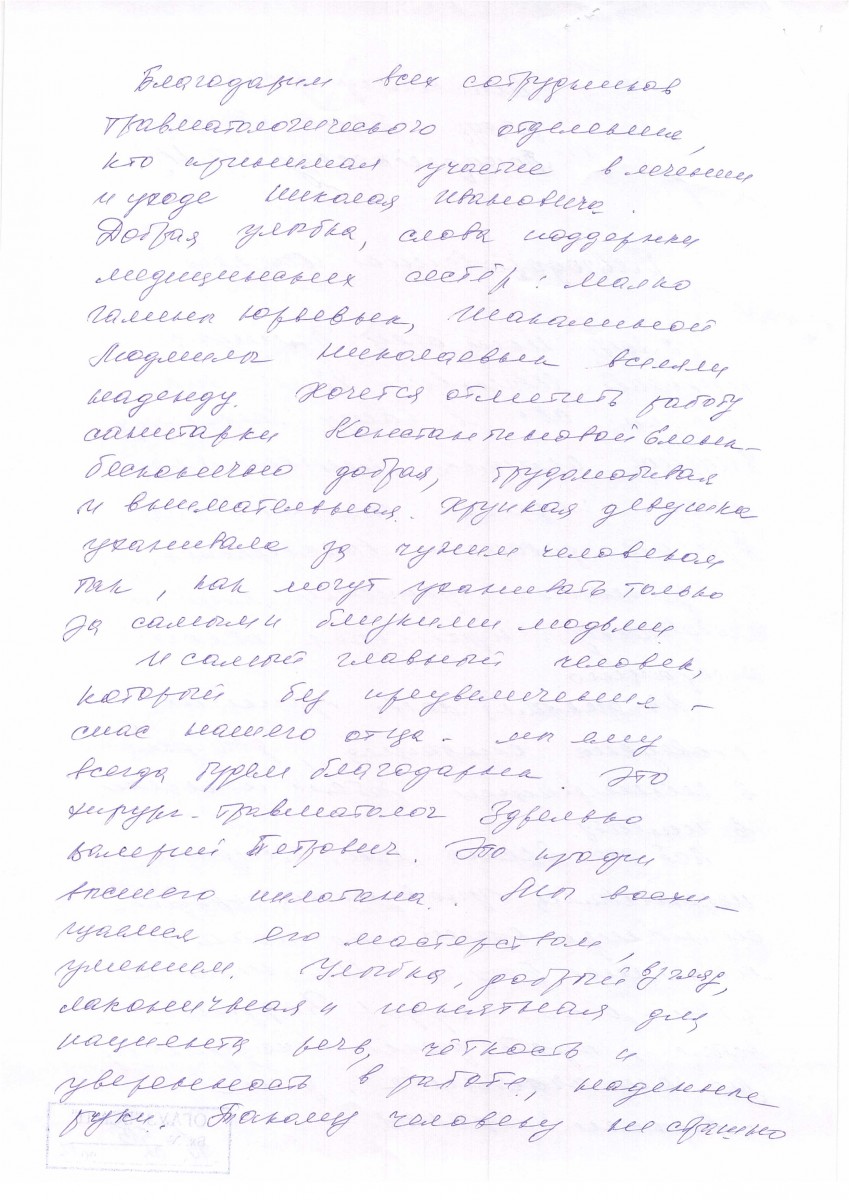 Благодарим всех сотрудников
травматологического отделения,
кто принимал участие в лечении
и уходе Николая Ивановича.
Добрая улыбка, слова поддержки
медицинских сестёр: Малко
Галины Юрьевны, Шакалиной
Людмилы Николаевны вселяли
надежду. Хочется отметить работу
санитарки Константиновой Елены –
бесконечно добрая, трудолюбивая
и внимательная. Хрупкая девушка
ухаживала за чужим человеком
так, как могут ухаживать только
за самыми близкими людьми
И самый главный человек,
который без преувеличения –
спас нашего отца – мы ему
всегда будем благодарны. Это
хирург-травматолог
Валерий Петрович. Это профи
высшего пилотажа. Мы восхи-
щаемся его мастерством,
умением. Улыбка, добрый взгляд,
лаконичная и понятная для
пациента речь, чёткость и
уверенность в работе, надежные
руки. Такому человеку не страшно